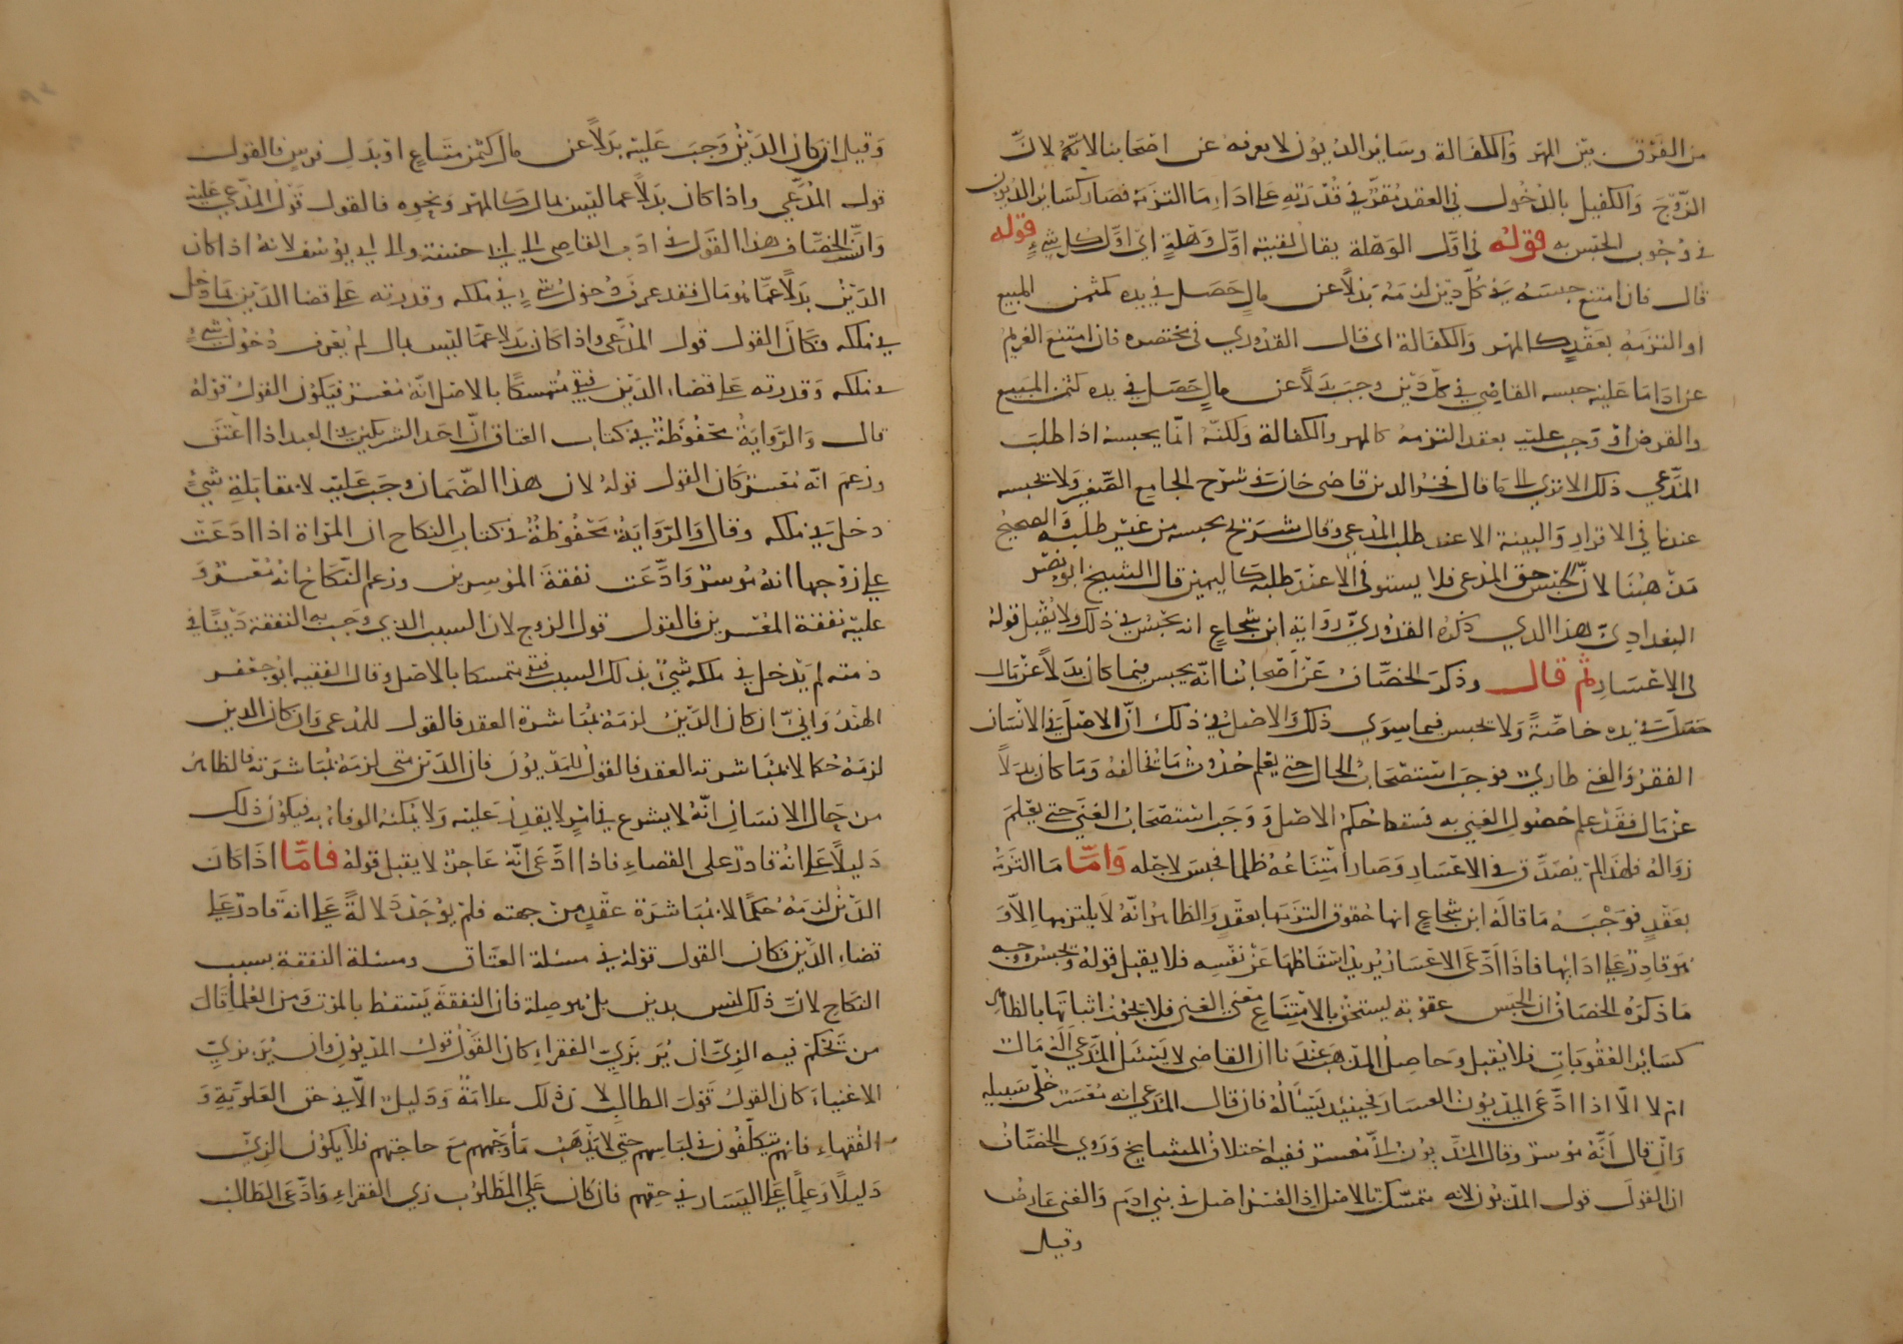 من الفرق بين المهر والكفالة وسائر الديون لا يعرف عن اصحابنا الايمة لانّ
الزوج والكفيل بالدخول في العقد مقرّ في قدرته على اداء ما التزمه فصار كسائر الديون
في وجوب الحبس به قوله في اوّل الوهلة يقال لقيته اوّل وهلة اي اوّل كل شيء قوله
قال فان امتنع حبسه في كلّ دين لزمه بدلا عن مال حصل في يده كثمن المبيع
او التزمه بعقد كالمهر والكفالة اى قال القدوري في مختصره فان امتنع الغريم
عن ادا ما عليه حبسه القاضي في كلّ دين وجب بدلا عن مال حصل في يده كثمن المبيع
والقرض او وجب عليه بعقد التزمه كالمهر والكفالة ولكنّه انّما يحبسه اذا طلب
المدّعي ذلك الا ترى الى ما قال فخر الدين قاضى خان في شرح الجامع الصغير ولا يحبسه
عندنا في الاقرار والبينة الا عند طلب المدعي وقال شريح يحبسه من غير طلبه والصحيح
مذهبنا لانّ الحبس حق المدعى فلا يستوفى الا عند طلبه كاليمين قال الشيخ ابو نصر
البغدادي هذا الذي ذكره القدوري رواية ابن شجاع انه يحبس في ذلك ولا يقبل قوله
في الاعسار ثم قال وذكر الخصّاف عن اصحابنا انّه يحبس فيما كان بدلا عن مال
حصل في يده خاصّة ولا يحبس فيما سوى ذلك والاصل في ذلك انّ الاصل في الانسان
الفقر والغنى طارئ فوجب استصحاب الحال حتى يعلم حدوث ما يخالفه وما كان بدلا
عن مال فقد علم حصول الغنى به فسقط حكم الاصل ووجب استصحاب الغنى حتى يعلم
زواله فلهذا لم يصدّق في الاعسار وصار امتناعه ظلما فحبس لاجله وامّا ما التزمه
بعقد فوجه ما قاله ابن شجاع انها حقوق التزمها بعقد والظاهر انّه لا يلتزمها الا و
هو قادر على ادائها فاذا ادّعى الاعسار يريد اسقاطها عن نفسه فلا يقبل قوله ويحبس وجه
ما ذكره الخصاف ان الحبس عقوبة يستحق بالامتناع مع الغنى فلا يجوز اثباتها بالظاهر
كسائر العقوبات فلا يقبل وحاصل المذهب عندنا ان القاضى لا يسئل المدّعى اله مال
ام لا الا اذا ادّعى المديون العسار فحينئذ يسأله فان قال المدّعى انه معسر خلّى سبيله
وان قال انّه موسر وقال المديون انا معسر ففيه اختلاف المشايخ وروى الخصّاف
ان القول قول المديون لانه متمسّك بالاصل اذ الفقر اصل في بني ادم والغنى عارض
وقيل
وقيل ان كان الدين وجب عليه بدلا عن مال كثمن متاع او بدل قرض فالقول
قول المدّعي واذا كان بدلا عما ليس بمال كالمهر ونحوه فالقول قول المدّعي عليه
الخصّاف هذا القول في ادب القاضى الى ابى حنيفة والى ابى يوسف لانه اذا كان
الدين بدلا عمّا هو مال فقد عرف دخول شيء في ملكه وقدرته على قضا الدين بما دخل
في ملكه فكان القول قول المدّعى واذا كان بدلا عمّا ليس بمال لم يعرف دخول شيء
في ملكه وقدرته على قضاء الدين فبقى متمسكا بالاصل انّه معسر فيكون القول قوله
قال والرواية محفوظة في كتاب العتاق انّ احد الشريكين في العبد اذا اعتق
وزعم انّه معسر كان القول قوله لان هذا الضمان وجب عليه لا بمقابلة شيء
دخل في ملكه وقال والرواية محفوظة في كتاب النكاح ان المراة اذا ادعت
على زوجها انه موسر وادّعت نفقة الموسرين وزعم النكاح انه معسر و
عليه نفقة المعسرين فالقول قول الزوج لان السبب الذي وجب به النفقة دينا في
ذمته لم يدخل في ملكه شيء بذلك السبب فبقى متمسكا بالاصل وقال الفقيه ابو جعفر
الهندواني ان كان الدين لزمه بمباشرة العقد فالقول للمدعى وان كان الدين
لزمه حكما لا بمباشرته العقد فالقول للمديون فان الدين متى لزمه بمباشرته فالظاهر
من حال الانسان انّه لا يشرع في امر لا يقدر عليه ولا يمكنه الوفاء به فيكون ذلك
دليلا على انه قادر على القضاء فاذا ادّعى انّه عاجز لا يقبل قوله فامّا اذا كان
الدين لزمه حكما لا بمباشرة عقد من جهته فلم يوجد دلالة على انه قادر على
قضاء الدين فكان القول قوله في مسئلة العتاق ومسئلة النفقة بسبب
النكاح لانّ ذلك ليس بدين بل هو صلة فان النفقة يسقط بالموت ومن العلماء قال
من تحكم فيه الزىّ ان يرى بزىّ الفقراء كان القول قول المديون وان يرى بزىّ
الاغنياء كان القول قول الطالب لانّ ذلك علامة ودليل الا في حق العلويّة و
الفقهاء فانهم يتكلّفون في لباسهم حتى لا يذهب ماء وجههم مع حاجتهم فلا يكون الزىّ
دليلا وعلما على اليسار في حقهم فان كان على المطلوب زى الفقراء وادّعى الطالب